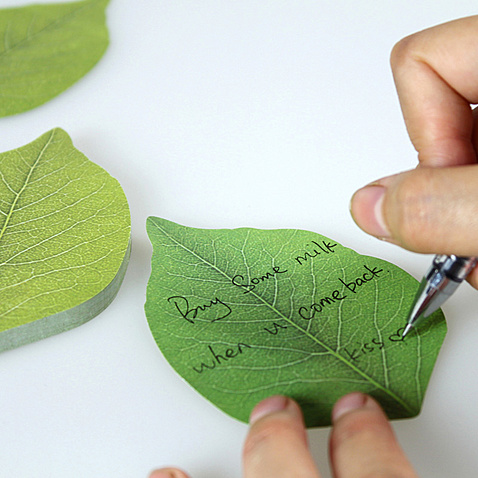 Buy some milk
when u come back.
kiss ♡